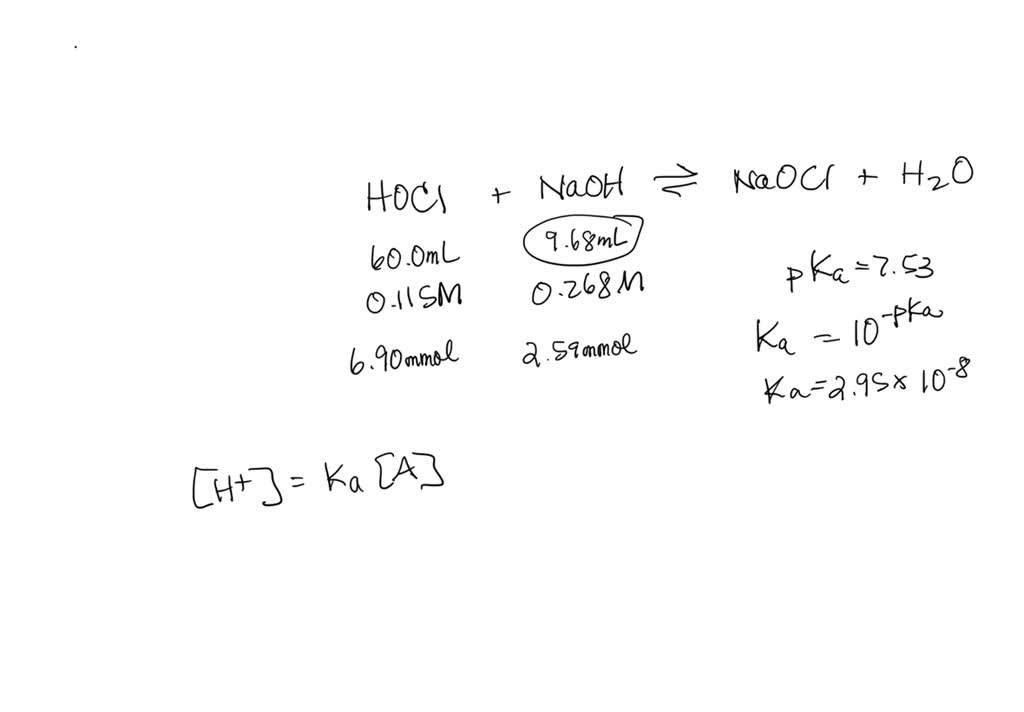 HOCl + NaOH ⇌ NaOCl + H₂O
60.0mL 9.68mL
0.115M 0.268M
6.90mmol 2.59mmol
pKa = 7.53
Ka = 10^-pKa
Ka = 2.95 x 10^-8
[H+] = Ka [A]